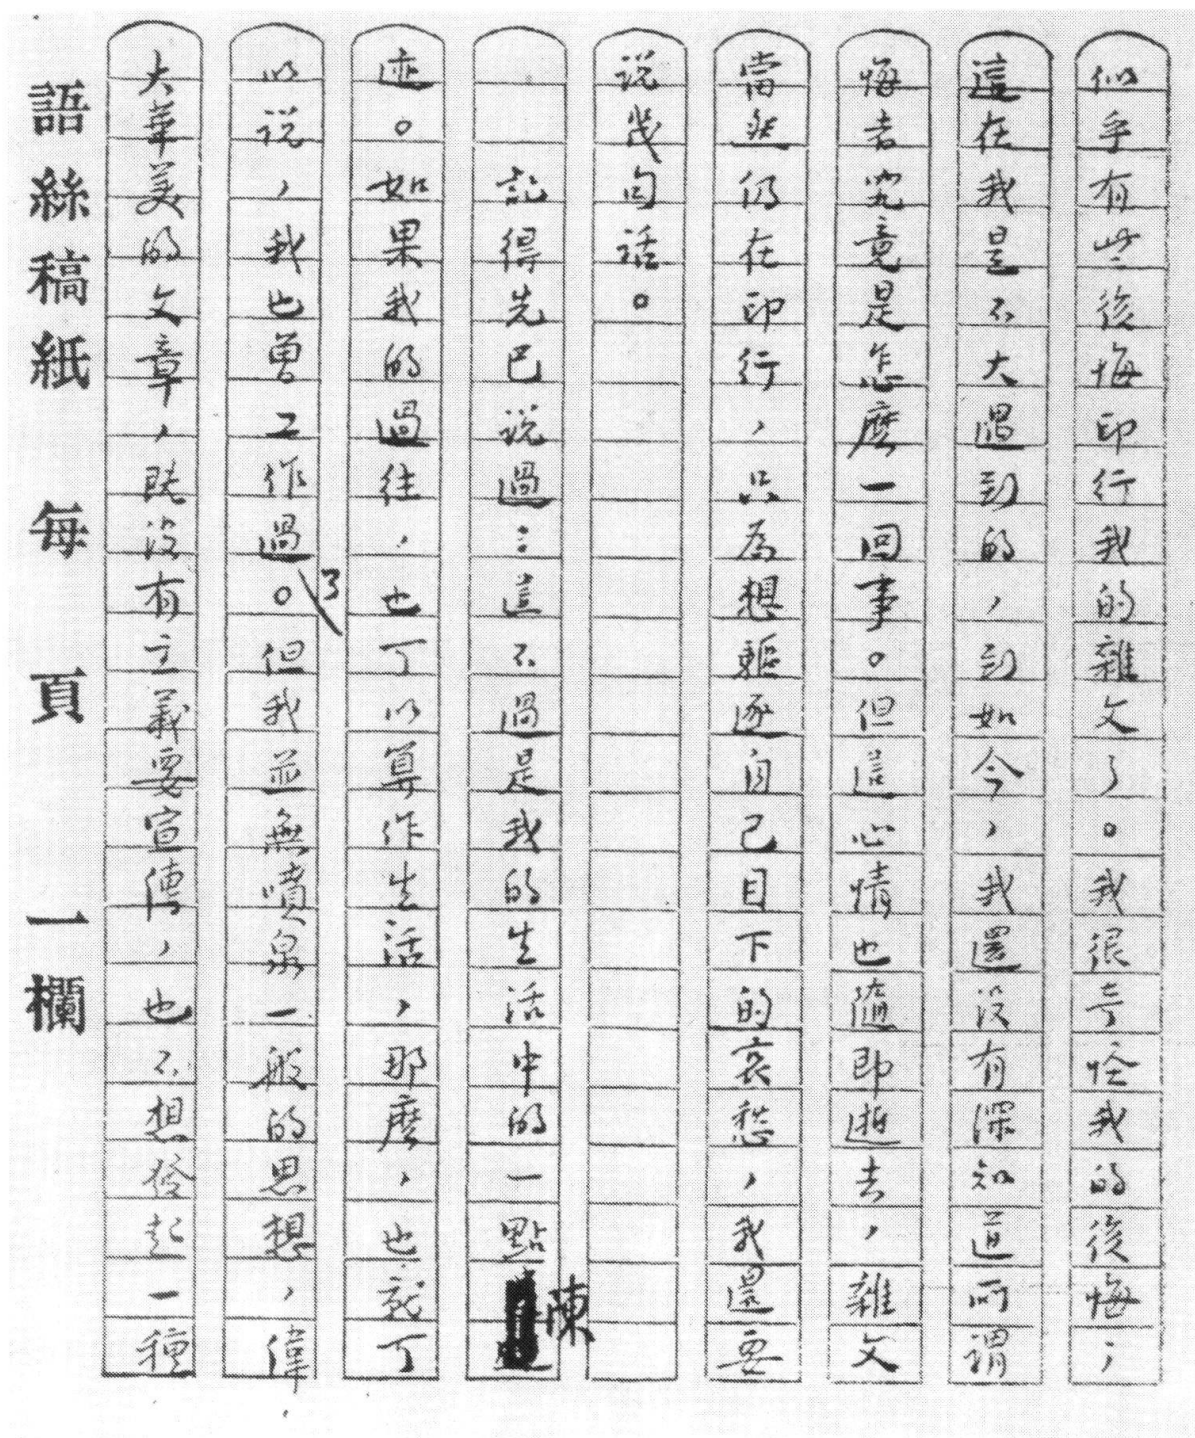 似乎有些後悔印行我的雜文了。我很奇怪我的後悔，
這在我是不大遇到的，到如今，我還沒有深知道所謂
悔者究竟是怎麽一回事。但這心情也隨即逝去，雜文
當然仍在印行，只為想驅逐自己目下的哀愁，我還要
说幾句話。
記得先已说過：這不過是我的生活中的一點陳
迹。如果我的過往，也可以算作生活，那麽，也就可
以说，我也曾工作過了。但我並無噴泉一般的思想，偉
大華美的文章，既沒有主義要宣傳，也不想發起一種
語絲稿紙 每頁一欄